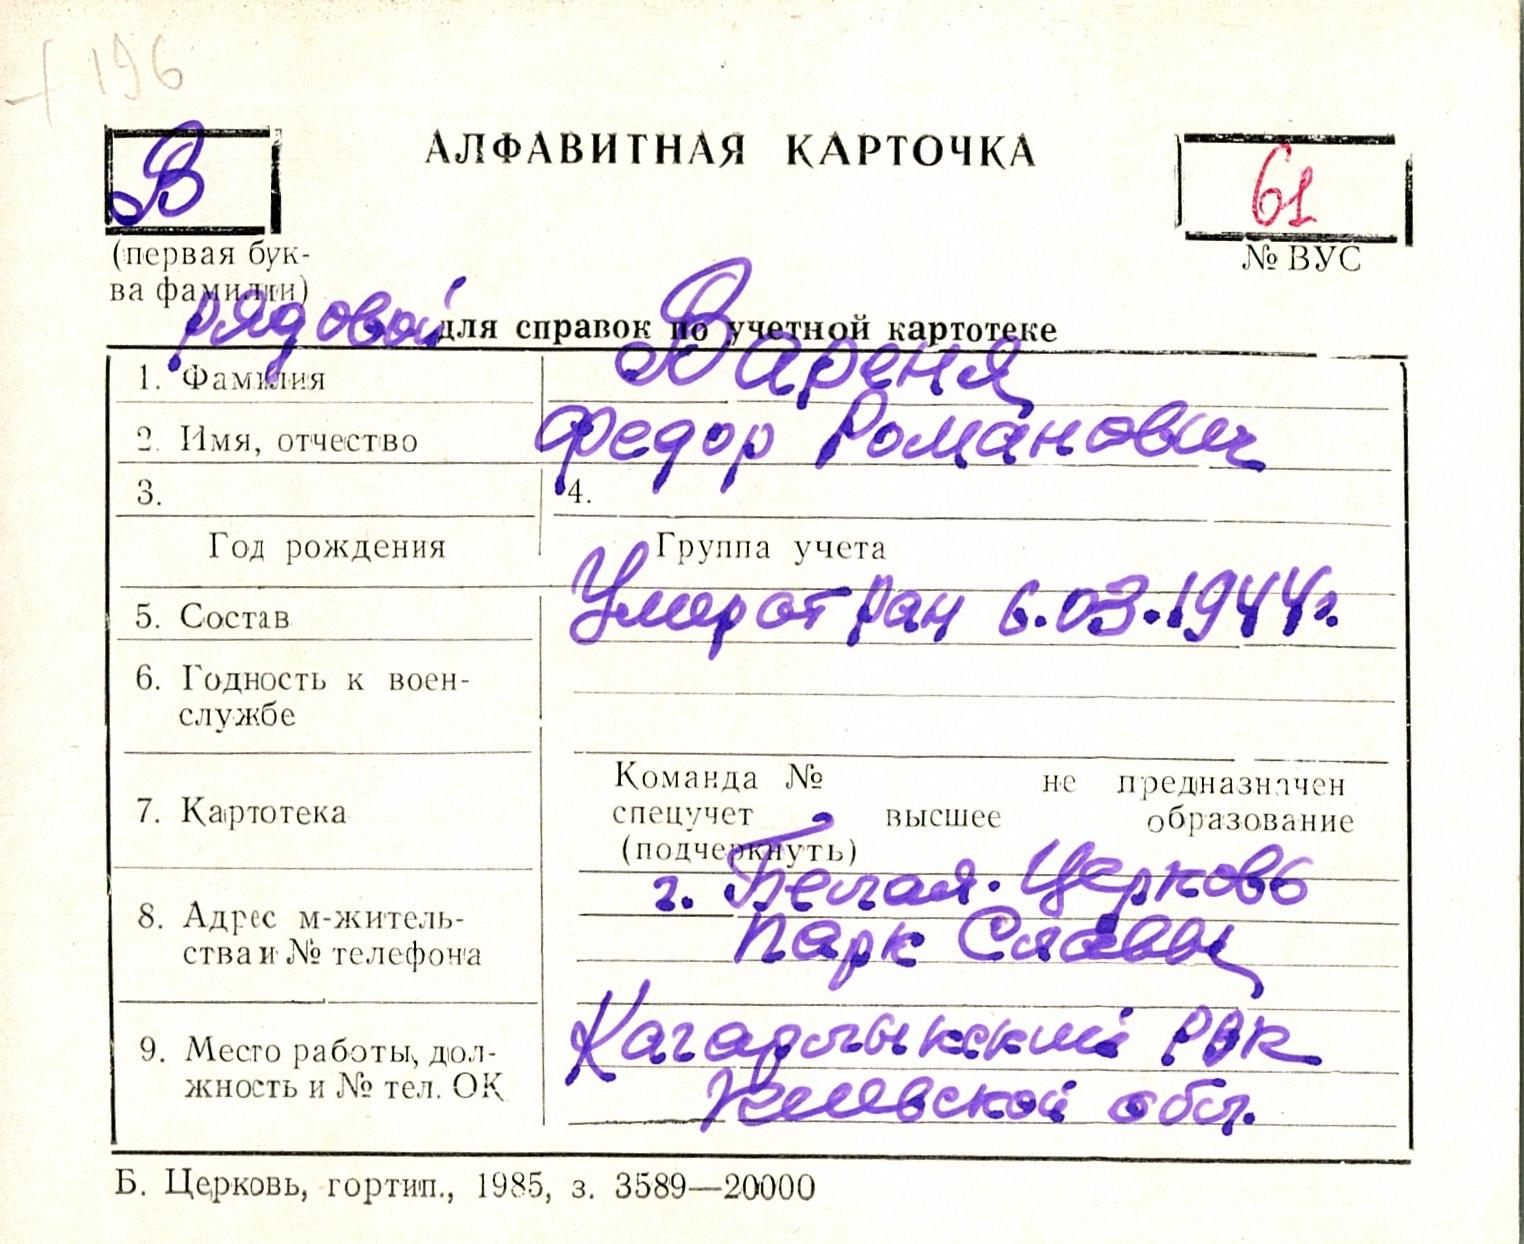 196
В
АЛФАВИТНАЯ КАРТОЧКА
61
(первая бук-
ва фамилии)
№ ВУС
рядовой
для справок по учетной картотеке
1. Фамилия
Вареня
2. Имя, отчество
Федор Романович
3.
4.
Год рождения
Группа учета
5. Состав
Умер от ран 6.03.1944г.
6. Годность к воен-
службе
7. Картотека
Команда № не предназначен
спецучет высшее образование
(подчеркнуть)
8. Адрес м-житель-
ства и № телефона
г. Белая Церковь
Парк Славы
9. Место работы, дол-
жность и № тел. ОК
Кагарлыкский РВК
Киевской обл.
Б. Церковь, гортип., 1985, з. 3589—20000